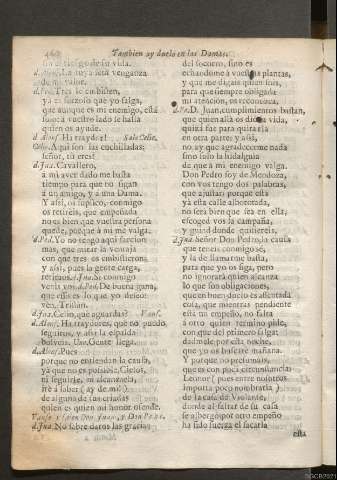 Tambien ay duelo en las Damas.
sin el riesgo de su vida.
La tuya será venganza
de mi valor.
d.Ped. Tres le embisten,
ya es forzoso que yo salga,
que aunque es mi enemigo, està
solo à vuestro lado se halla
quien os ayude.
d.Alons. Ha traydores! Sale Celio.
Celio. Aqui son las cuchilladas:
señor, tu eres?
d.Jua. Cavallero,
à mi aver dado me basta
tiempo para que no sigan
à un amigo, y à una Dama.
Y assi, os suplico, conmigo
os retireis, que empeñada
no es bien que vuestra persona
quede, porque à mi me valga.
d.Ped. Yo no tengo aqui faccion
mas, que mirar la ventaja
con que tres os embistieron
y assi, pues la gente carga,
retiraos. d.Jua. Si conmigo
venis vos. d.Ped. De buena gana,
que esso es lo que yo deseo:
vèn, Tristan.
d.Jua. Celio, què aguardas? Vanse.
d.Alons. Ha traydores, que no puedo
seguiros, y aun la espalda
bolveis. Uno. Gente llega.
d.Alons. Pues
porque no entiendan la causa,
yà que no es possible, Cielos,
ni seguirle, ni alcançarle,
irè à saber (ay de mi)
de alguna de sus criadas
quien es quien mi honor ofende.
Vanse, y salen Don Juan, y Don Pedro.
d.Jua. No sabrè daros las gracias
del socorro, sino es
echandome à vuestras plantas,
y que me digais quien sois,
para que siempre obligada
mi atencion, os reconozca.
d.Pe. D. Juan, cumplimientos bastan,
que quien allà os diò la vida,
quizà fue para quitarosla
en otra parte; y assi,
no ay que agradecerme nada
sino solo la hidalguia
de que à mi enemigo valga.
Don Pedro soy de Mendoza,
con vos tengo dos palabras,
que ajustar; porque està
yà esta calle alborotada,
no serà bien que sea en ella,
escoged vos la campaña,
y guiad donde quisiereis.
d.Jua. Señor Don Pedro, la causa
que teneis conmigo sè,
y la de llamarme basta,
para que yo os siga, pero
no ignorarà quien alcança
lo que son obligaciones,
que en buen duelo es assentada
cosa, que mientras pendiente
està un empeño, no falta
à otro quien termino pide,
con que del primero salga:
dadmele por esta noche,
que yo os buscarè mañana.
Y porque no presumais,
que es con poca circunstancia
Leonor (pues entre nosotros
importa poco nombrarla)
de la casa de Violante,
donde al faltar de su casa
se albergò por otro empeño
ha sido fuerza el sacarla
esta